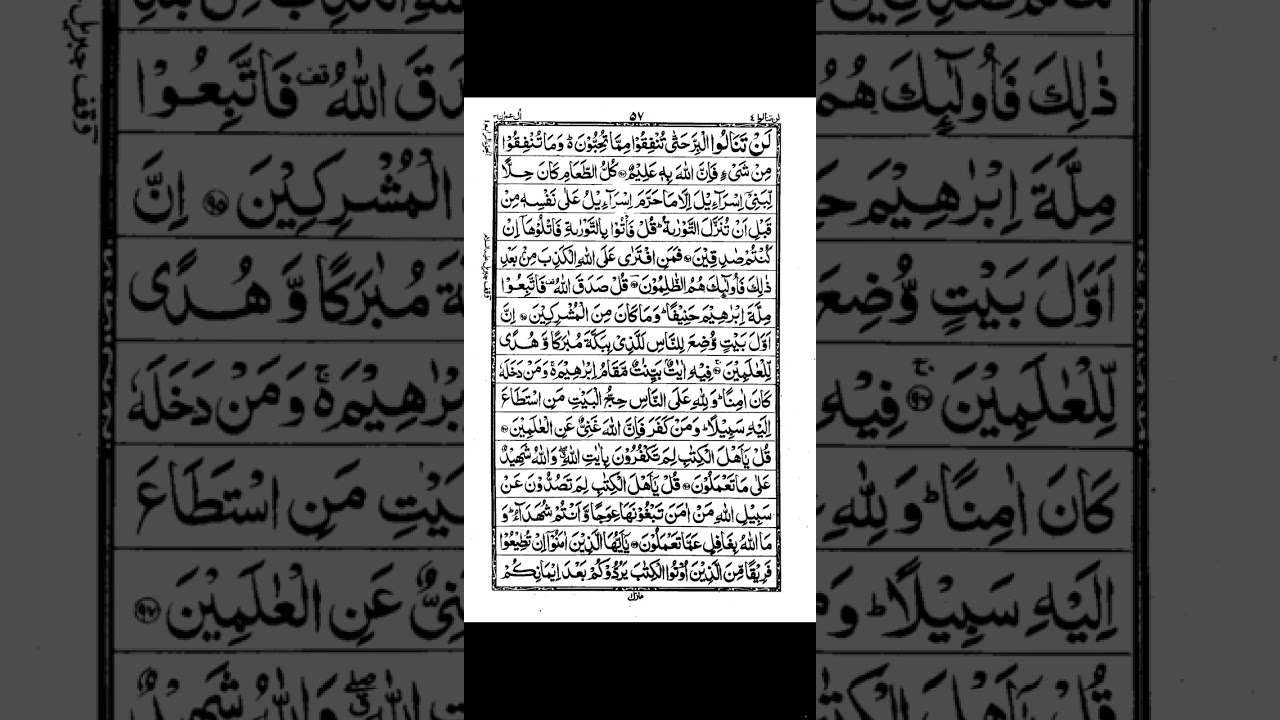 لن تنالوا ٤
٥٧
اٰل عمرٰن ٣
لَنْ تَنَالُوا الْبِرَّ حَتّٰى تُنْفِقُوْا مِمَّا تُحِبُّوْنَ ؕ وَمَا تُنْفِقُوْا
مِنْ شَىْءٍ فَاِنَّ اللّٰهَ بِهٖ عَلِيْمٌ ۹۲ كُلُّ الطَّعَامِ كَانَ حِلًّا
لِّبَنِىْۤ اِسْرَآءِيْلَ اِلَّا مَا حَرَّمَ اِسْرَآءِيْلُ عَلٰى نَفْسِهٖ مِنْ
قَبْلِ اَنْ تُنَزَّلَ التَّوْرٰىةُ ؕ قُلْ فَاْتُوْا بِالتَّوْرٰىةِ فَاتْلُوْهَاۤ اِنْ
كُنْتُمْ صٰدِقِيْنَ ۹۳ فَمَنِ افْتَرٰى عَلَى اللّٰهِ الْكَذِبَ مِنْۢ بَعْدِ
ذٰلِكَ فَاُولٰٓئِكَ هُمُ الظّٰلِمُوْنَ ۹۴ قُلْ صَدَقَ اللّٰهُ قف فَاتَّبِعُوْا
مِلَّةَ اِبْرٰهِيْمَ حَنِيْفًا ؕ وَمَا كَانَ مِنَ الْمُشْرِكِيْنَ ۹۵ اِنَّ
اَوَّلَ بَيْتٍ وُّضِعَ لِلنَّاسِ لَلَّذِىْ بِبَكَّةَ مُبٰرَكًا وَّهُدًى
لِّلْعٰلَمِيْنَ ۹۶ ج فِيْهِ اٰيٰتٌۢ بَيِّنٰتٌ مَّقَامُ اِبْرٰهِيْمَ ۚ وَمَنْ دَخَلَهٗ
كَانَ اٰمِنًا ؕ وَلِلّٰهِ عَلَى النَّاسِ حِجُّ الْبَيْتِ مَنِ اسْتَطَاعَ
اِلَيْهِ سَبِيْلًا ؕ وَمَنْ كَفَرَ فَاِنَّ اللّٰهَ غَنِىٌّ عَنِ الْعٰلَمِيْنَ ۹۷
قُلْ يٰۤاَهْلَ الْكِتٰبِ لِمَ تَكْفُرُوْنَ بِاٰيٰتِ اللّٰهِ ۖ وَاللّٰهُ شَهِيْدٌ
عَلٰى مَا تَعْمَلُوْنَ ۹۸ قُلْ يٰۤاَهْلَ الْكِتٰبِ لِمَ تَصُدُّوْنَ عَنْ
سَبِيْلِ اللّٰهِ مَنْ اٰمَنَ تَبْغُوْنَهَا عِوَجًا وَّاَنْتُمْ شُهَدَآءُ ؕ وَ
مَا اللّٰهُ بِغَافِلٍ عَمَّا تَعْمَلُوْنَ ۹۹ يٰۤاَيُّهَا الَّذِيْنَ اٰمَنُوْۤا اِنْ تُطِيْعُوْا
فَرِيْقًا مِّنَ الَّذِيْنَ اُوْتُوا الْكِتٰبَ يَرُدُّوْكُمْ بَعْدَ اِيْمَانِكُمْ
منزل